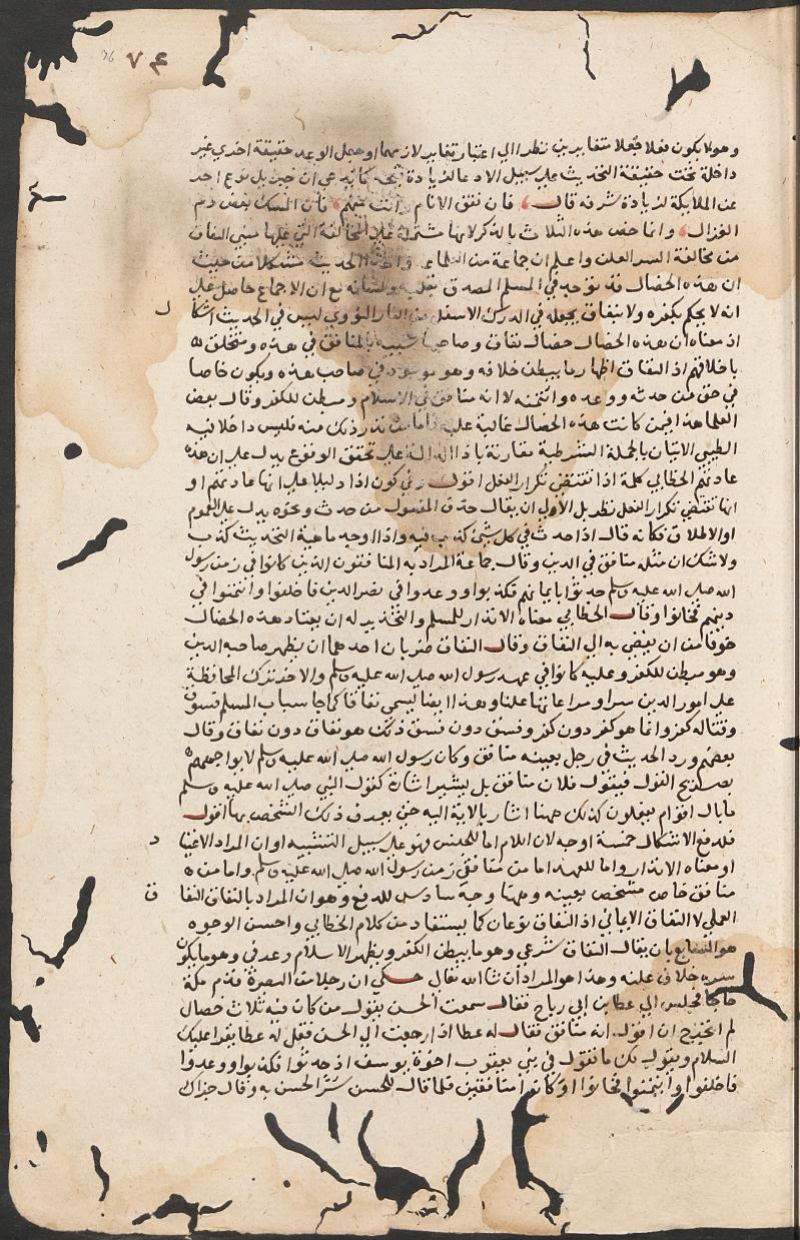 ٧٤
وهو لا يكون فعلا فجعلا متغايرين نظرا الي اعتبار تغاير لازمهما او جعل الوعد حقيقة اخري غير
داخلة تحت حقيقة التحديث علي سبيل الادعا لزيادة قبحه كما يدعي ان جبريل نوع اخر
عن الملايكة لزيادة شرفه قال فان تفق الانام وانت منهم فان المسك بعض دم
الغزال وانما خص هذه الثلاث بالذكر لانها مشتملة علي المخالفة التي عليها مبني النفاق
من مخالفة السر العلن واعلم ان جماعة من العلما الحديث مشكلا من حيث
ان هذه الخصال قد توجد في المسلم المصدق بقلبه ولسانه مع ان الاجماع حاصل علي
انه لا يحكم بكفره ولا بنفاق يجعله في الدرك الاسفل من النار النووي ليس في الحديث اشكا
ل
اذ معناه ان هذه الخصال خصال نفاق وصاحبها شبيه بالمنافق في هذه ومتخلق
باخلاقهم اذ النفاق اظهار ما يبطن خلافه وهو موجود في صاحب هذه ويكون خاصا
في حق من حدثه ووعده وائتمنه لا انه منافق في الاسلام ومبطن للكفر وقال بعض
العلما هذا فيمن كانت هذه الخصال غالبة عليه فاما من ندر ذلك منه فليس داخلا فيه
الطيبي الاتيان بالجملة الشرطية مقارنة باذا الدالة علي تحقق الوقوع يدل علي ان هذه
عادتهم الخطابي كلمة اذا تقتضي تكرار الفعل اقول وفي كون اذا دليلا علي انها عادتهم او
انها تقتضي تكرار الفعل نظر بل الاولي ان يقال حذف المفعول من حدث ونحوه يدل علي العموم
او الاطلاق فكانه قال اذا حدث في كل شي كذب فيه واذا اوجد ماهية التحديث كذب
ولا شك ان مثله منافق في الدين وقال جماعة المراد به المنافقون الذين كانوا في زمن رسول
الله صلي الله عليه وسلم حدثوا بايمانهم فكذبوا ووعدوا في نصر الدين فاخلفوا وائتمنوا في
دينهم فخانوا وقال الخطابي معناه الانذار للمسلم والتحذير له ان يعتاد هذه الخصال
خوفا من ان يفضي به الي النفاق وقال النفاق ضربان احدهما ان يظهر صاحبه الدين
وهو مبطن للكفر وعليه كانوا في عهد رسول الله صلي الله عليه وسلم والاخر ترك المحافظة
علي امور الدين سرا ومراعاتها علنا وهذا ايضا يسمي نفاقا كما جا سباب المسلم فسوق
وقتاله كفر وانما هو كفر دون كفر وفسق دون فسق ذلك هو نفاق دون نفاق وقال
بعضهم ورد الحديث في رجل بعينه منافق وكان رسول الله صلي الله عليه وسلم لا يواجههم
بصريح القول فيقول فلان منافق بل يشير اشارة كقول النبي صلي الله عليه وسلم
ما بال اقوام يفعلون كذلك ههنا اشار بالاية اليه حتي يعرف ذلك الشخص بها اقول
فلدفع الاشكال خمسة اوجه لان اللام اما للجنس فهو علي سبيل التشبيه او ان المراد الاعتيا
د
او معناه الانذار واما للعهد اما من منافقي زمن رسول الله صلي الله عليه وسلم واما من
منافق خاص مشخص بعينه وههنا وجه سادس للدفع وهو ان المراد بالنفاق النفا
ق
العملي لا النفاق الايماني اذ النفاق نوعان كما يستفاد من كلام الخطابي واحسن الوجوه
هو السابع بان يقال النفاق شرعي وهو ما يبطن الكفر ويظهر الاسلام وعرفي وهو ما يكون
سره خلاف علنه وهذا هو المراد ان شا الله تعالي حكي ان رجلا من البصرة قدم مكة
حاجا فجلس الي عطا بن ابي رباح فقال سمعت الحسن يقول من كان فيه ثلاث خصال
لم اتحرج ان اقول انه منافق فقال له عطا اذا رجعت الي الحسن فقل له عطا يقرا عليك
السلام ويقول لك ما تقول في بني يعقوب اخوة يوسف اذ حدثوا فكذبوا ووعدوا
فاخلفوا وائتمنوا فخانوا او كانوا منافقين فلما قال للحسن سر الحسن به وقال جزاك